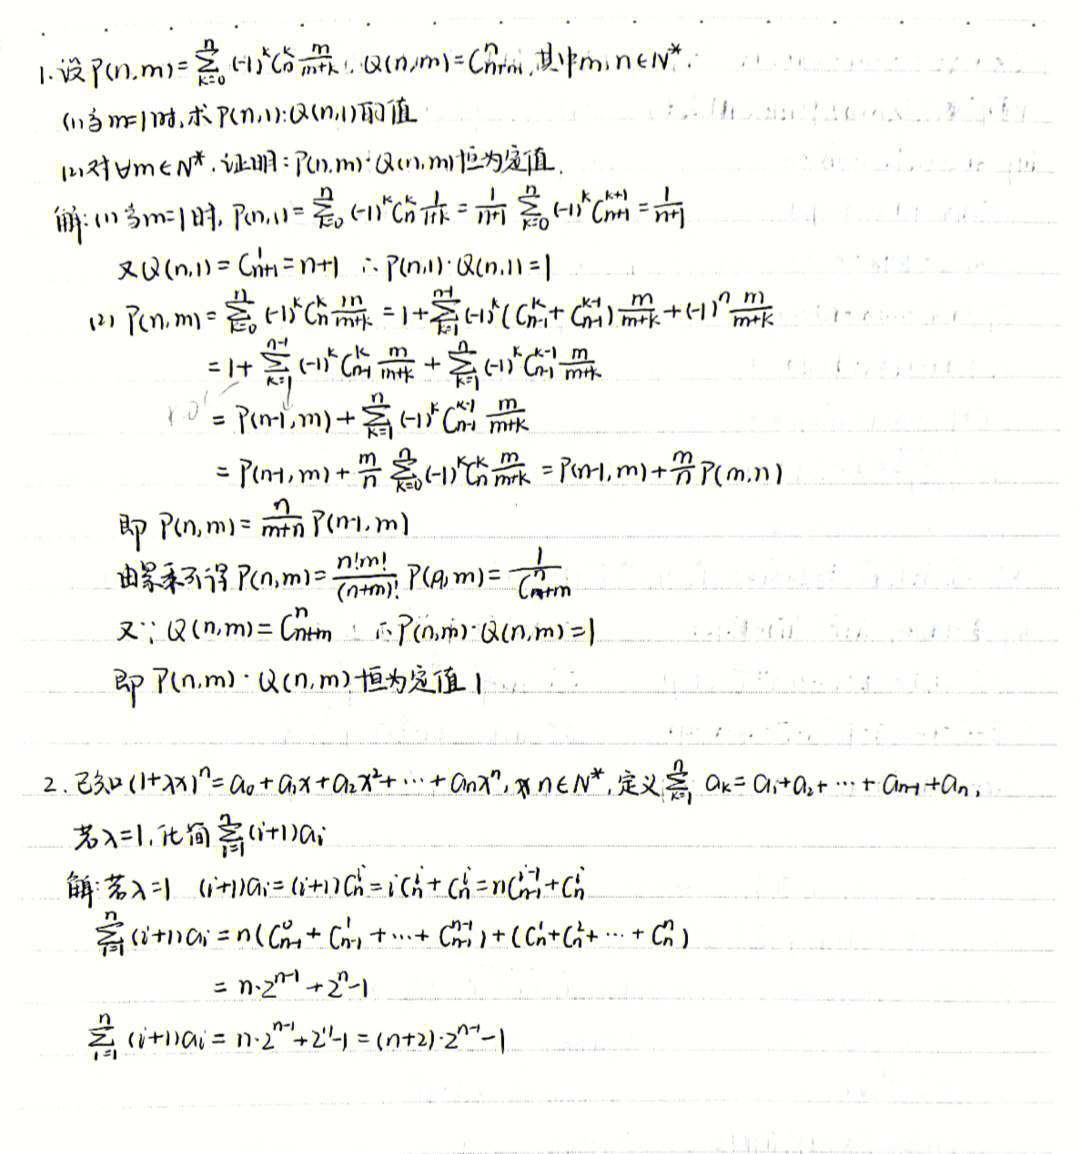 1.设P(n,m)=∑_{k=0}^{n}(-1)^k C_n^k m/(m+k), Q(n,m)=C_{n+m}^n,其中m,n∈N*.
(1)当m=1时,求P(n,1)·Q(n,1)的值
(2)对∀m∈N*,证明:P(n,m)·Q(n,m)恒为定值.
解:(1)当m=1时, P(n,1)=∑_{k=0}^{n}(-1)^k C_n^k 1/(1+k)=1/(n+1) ∑_{k=0}^{n}(-1)^k C_{n+1}^{k+1}=1/(n+1)
又Q(n,1)=C_{n+1}^1=n+1 ∴P(n,1)·Q(n,1)=1
(2) P(n,m)=∑_{k=0}^{n}(-1)^k C_n^k m/(m+k)=1+∑_{k=1}^{n-1}(-1)^k(C_{n-1}^k+C_{n-1}^{k-1})m/(m+k)+(-1)^n m/(m+k)
=1+∑_{k=1}^{n-1}(-1)^k C_{n-1}^k m/(m+k)+∑_{k=1}^{n}(-1)^k C_{n-1}^{k-1} m/(m+k)
=P(n-1,m)+∑_{k=1}^{n}(-1)^k C_{n-1}^{k-1} m/(m+k)
=P(n-1,m)+m/n ∑_{k=0}^{n}(-1)^k C_n^k m/(m+k)=P(n-1,m)+m/n P(m,n)
即 P(n,m)=n/(m+n) P(n-1,m)
由累乘可得P(n,m)=n!m!/(n+m)! P(0,m)=1/C_{n+m}^n
又∵Q(n,m)=C_{n+m}^n ∴P(n,m)·Q(n,m)=1
即 P(n,m)·Q(n,m)恒为定值1
2.已知(1+λx)^n=a_0+a_1x+a_2x^2+…+a_nx^n, n∈N*,定义∑_{k=1}^{n} a_k=a_1+a_2+…+a_{n-1}+a_n,
若λ=1,化简∑_{i=1}^{n}(i+1)a_i
解:若λ=1 (i+1)a_i=(i+1)C_n^i=iC_n^i+C_n^i=nC_{n-1}^{i-1}+C_n^i
∑_{i=1}^{n}(i+1)a_i=n(C_{n-1}^0+C_{n-1}^1+…+C_{n-1}^{n-1})+(C_n^1+C_n^2+…+C_n^n)
=n·2^{n-1}+2^n-1
∑_{i=1}^{n}(i+1)a_i=n·2^{n-1}+2^n-1=(n+2)·2^{n-1}-1